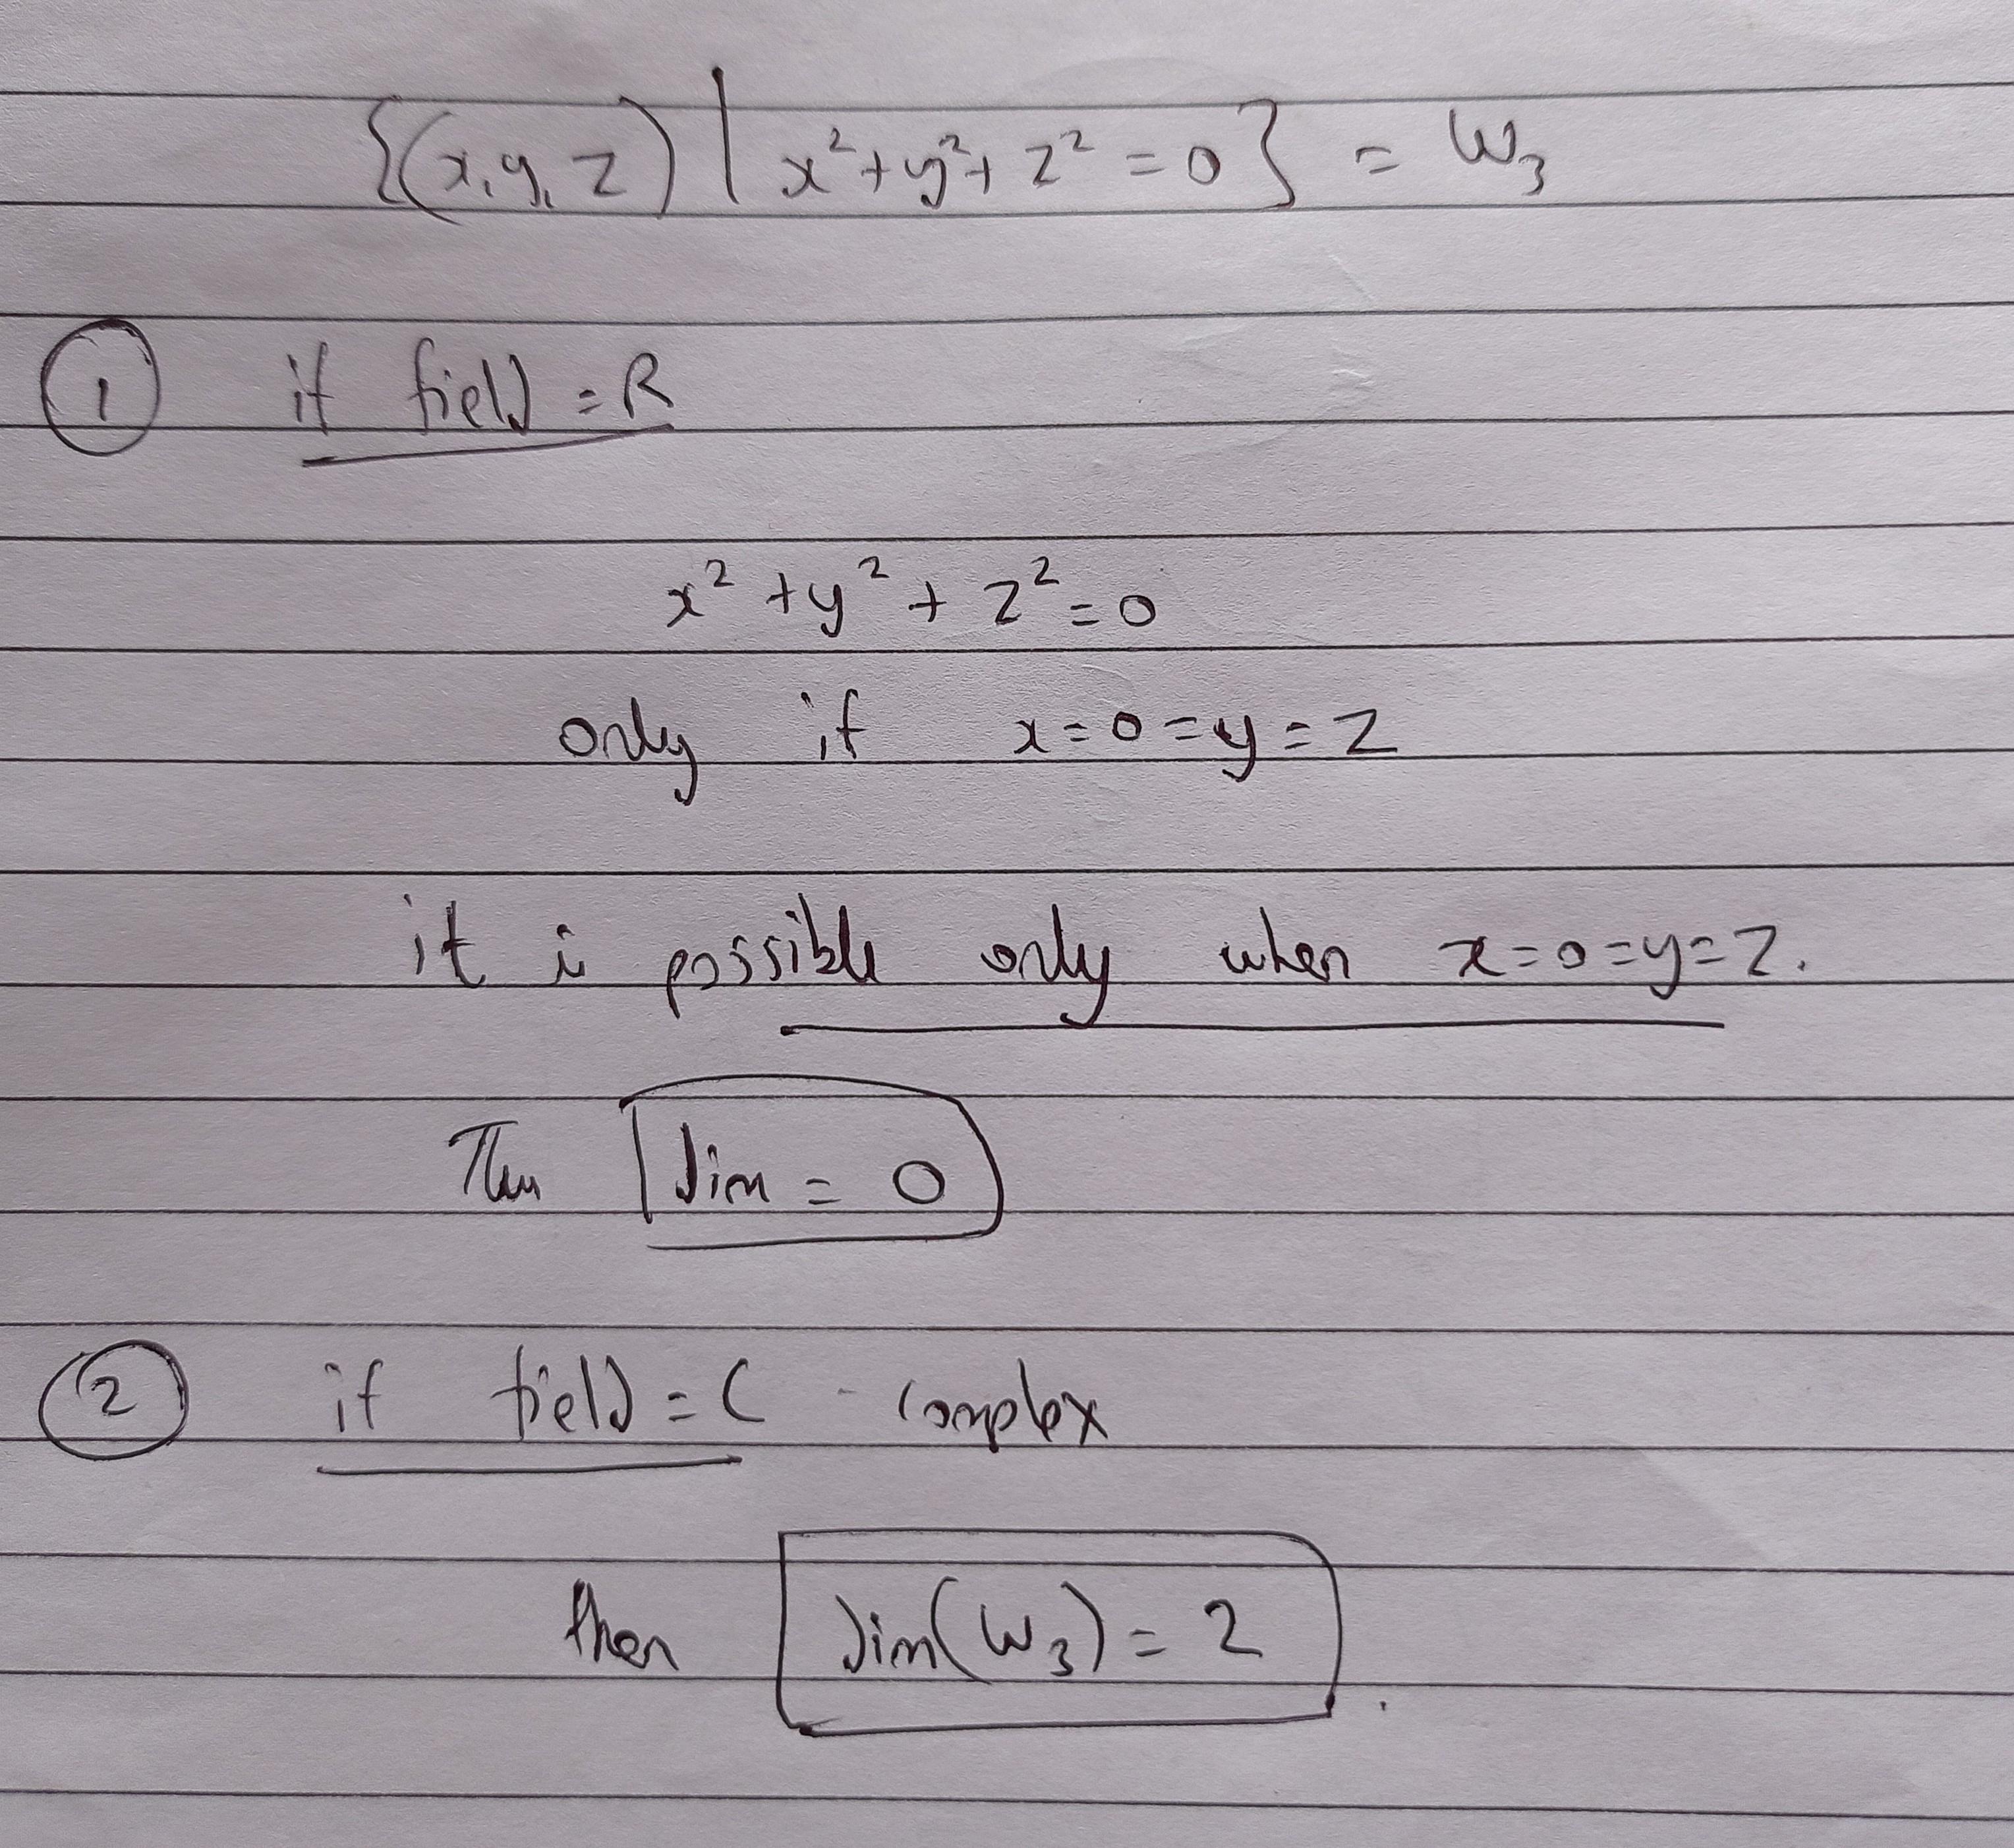 {(x, y, z) | x² + y² + z² = 0} = W₃
① if field = R
x² + y² + z² = 0
only if x = 0 = y = z
it is possible only when x = 0 = y = z.
Then dim = 0
② if field = C - complex
then dim(W₃) = 2.